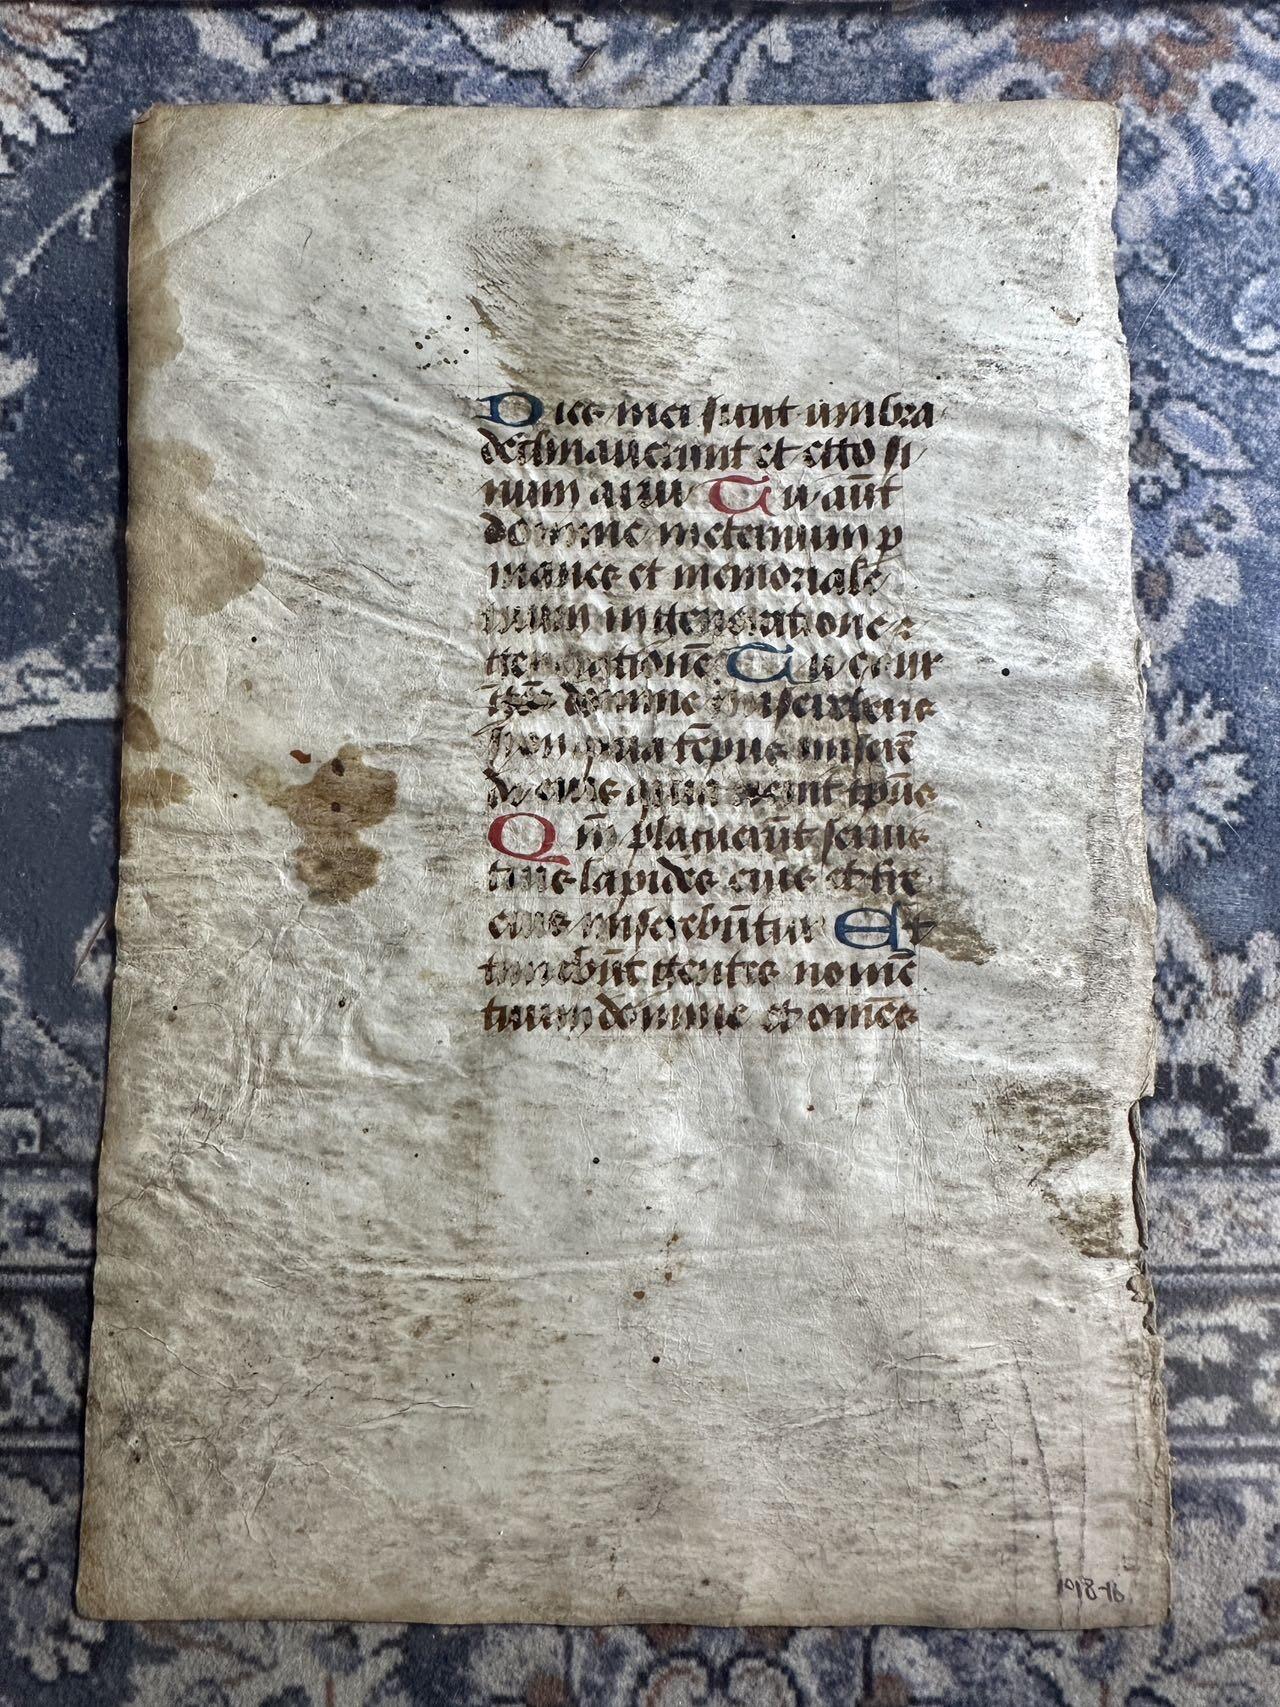 Dies mei sicut umbra
declinauerunt et ego si
cut fenum arui Tu aūt
domine ineternum ꝑ
manes et memoriale
tuum in generatione ⁊
generationē Tu exur
gēs domine misereberis
syon quia tēpus miserē
di eius quia uenit tp̄us
Qm̄ placuerūt seruis
tuis lapides eius et tr̄e
eius miserebūtur Et
timebūt gentes nomē
tuum domine et omēs
1918-16